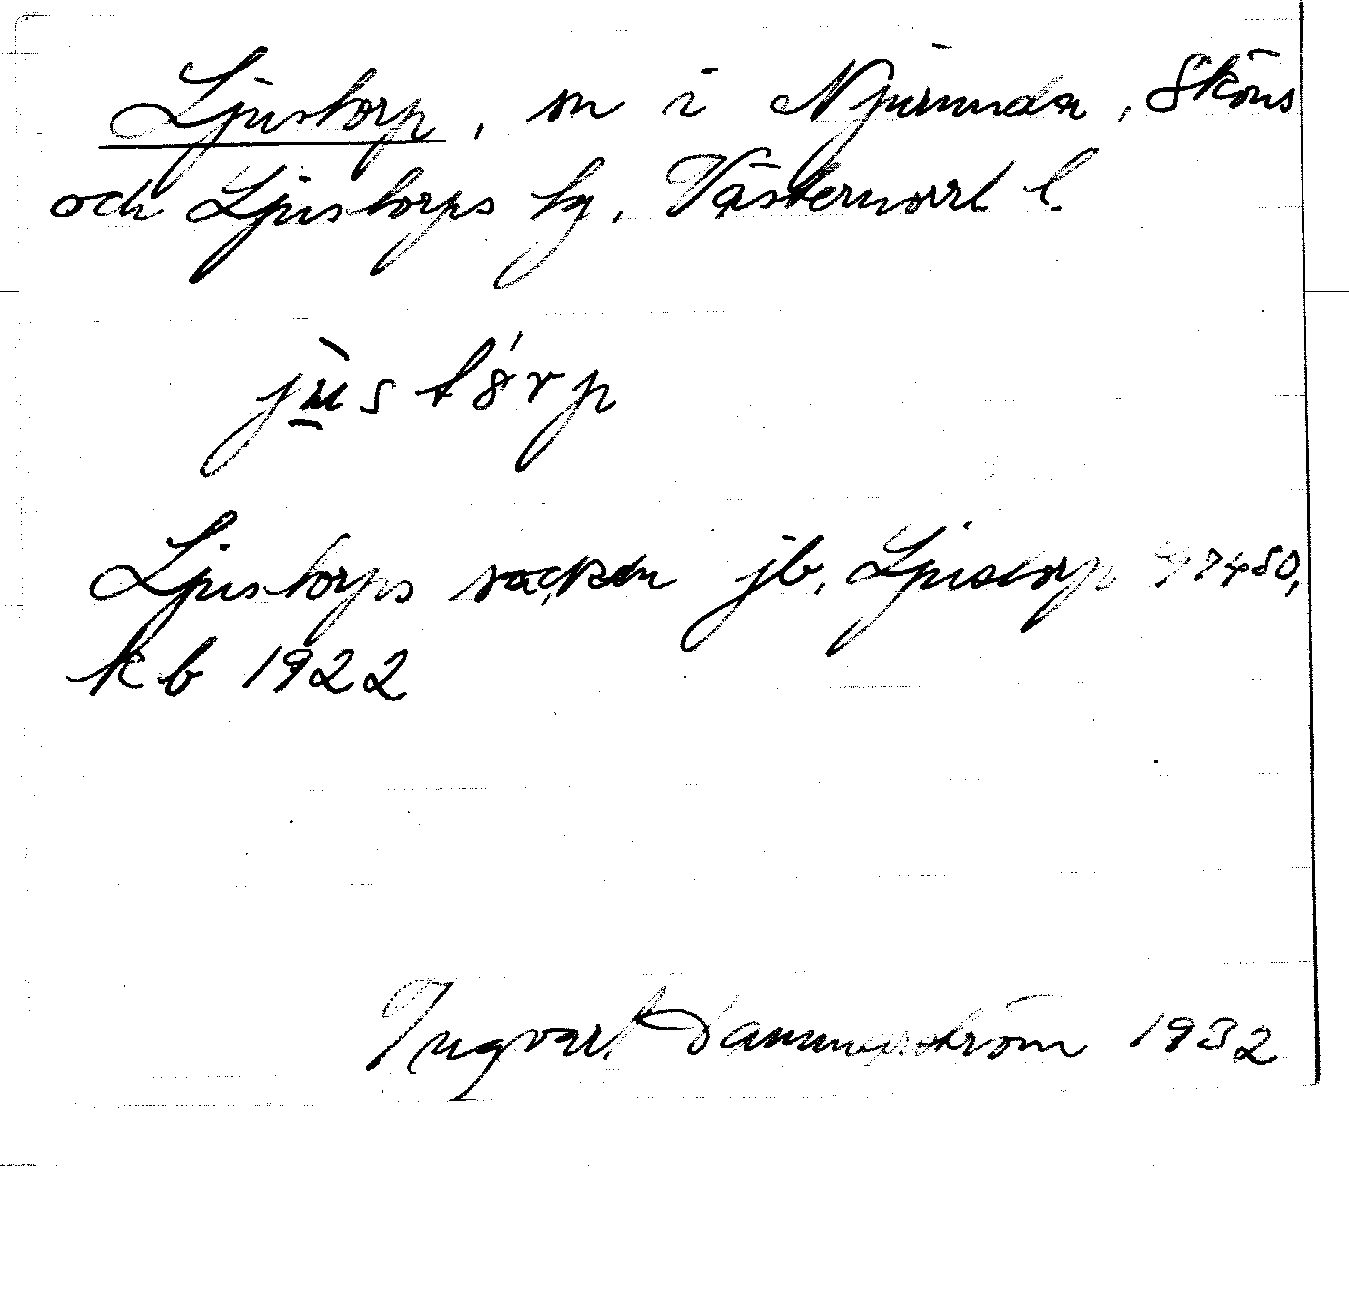 Ljustorp, sn i Njurunda, Sköns
och Ljustorps tg, Västernorrl l.
Ljustorps socken jb, Ljustorp
kb 1922
Ingvart Dammerström 1932